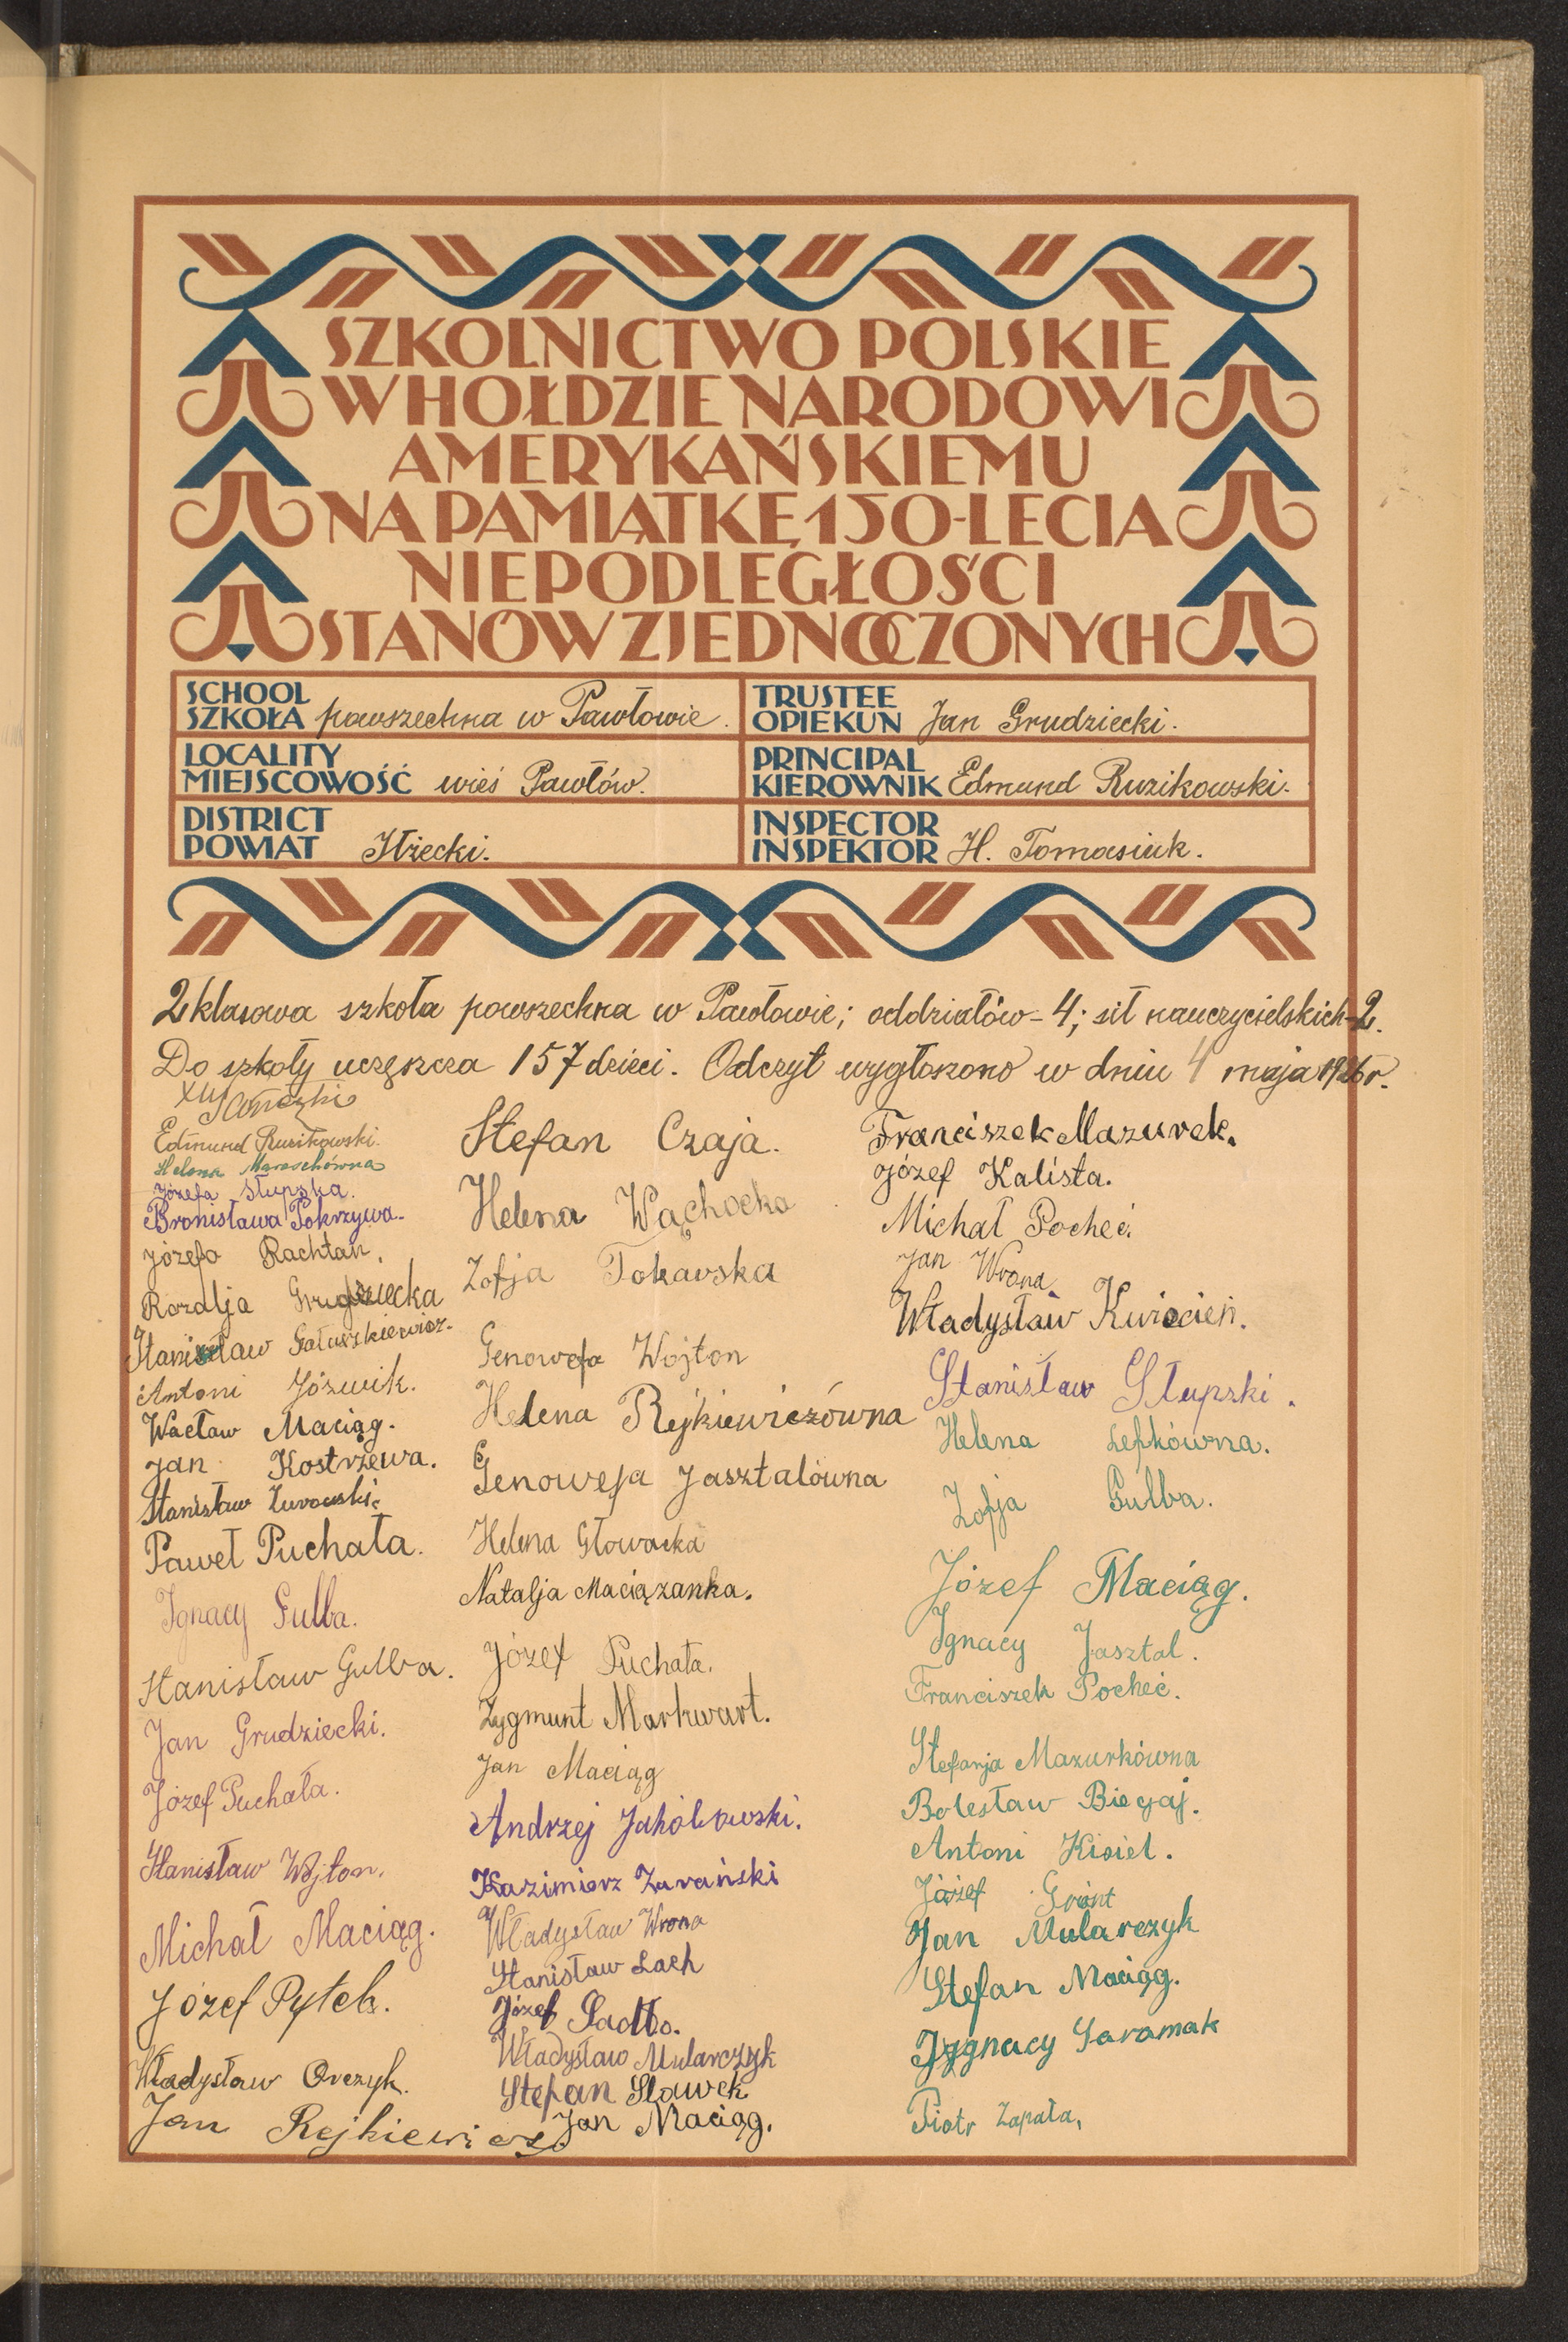 SZKOLNICTWO POLSKIE
W HOŁDZIE NARODOWI
AMERYKAŃSKIEMU
NA PAMIĄTKĘ 150-LECIA
NIEPODLEGŁOŚCI
STANÓW ZJEDNOCZONYCH
SCHOOL
SZKOŁA powszechna w Pawłowie.
LOCALITY
MIEJSCOWOŚĆ wieś Pawłów.
DISTRICT
POWIAT Iłżecki.
TRUSTEE
OPIEKUN Jan Grudziecki.
PRINCIPAL
KIEROWNIK Edmund Ruzikowski.
INSPECTOR
INSPEKTOR H. Tomasiuk.
2 klasowa szkoła powszechna w Pawłowie; oddziałów - 4; sił nauczycielskich - 2.
Do szkoły uczęszcza 157 dzieci. Odczyt wygłoszono w dniu 4 maja 1926 r.
Edmund Ruzikowski.
Helena
Józefa Słupska.
Bronisława Pokrzywa.
Józefa Rachtan.
Rozalja Grudziecka
Stanisław Gałuszkiewicz.
Antoni Józwik.
Wacław Maciąg.
Jan Kostrzewa.
Stanisław Żurowski.
Paweł Puchała.
Ignacy Gulba.
Stanisław Gulba.
Jan Grudziecki.
Józef Puchała.
Stanisław Wojton.
Michał Maciąg.
Józef Pytel.
Władysław Orczyk.
Jan Rejkiewicz.
Stefan Czaja.
Helena Wąchocka
Zofja Tokarska
Genowefa Wojton
Helena Rejkiewiczówna
Genowefa Jasztalówna
Helena Głowacka
Natalja Maciązanka.
Józef Puchała.
Zygmunt Markwart.
Jan Maciąg
Andrzej Jakóbowski.
Kazimierz Żurański
Władysław Wrona
Stanisław Lach
Józef Sadło.
Władysław Mularczyk
Stefan Sławek
Jan Maciąg.
Franciszek Mazurek.
Józef Kalista.
Michał Pocheć.
Jan Wrona
Władysław Kwiecień.
Stanisław Słupski.
Helena Lefkówna.
Zofja Gulba.
Józef Maciąg.
Ignacy Jasztal.
Franciszek Pocheć.
Stefanja Mazurkówna
Bolesław Biegaj.
Antoni Kisiel.
Józef Gront
Jan Mularczyk
Stefan Maciąg.
Jygnacy Saramak
Piotr Zapała,